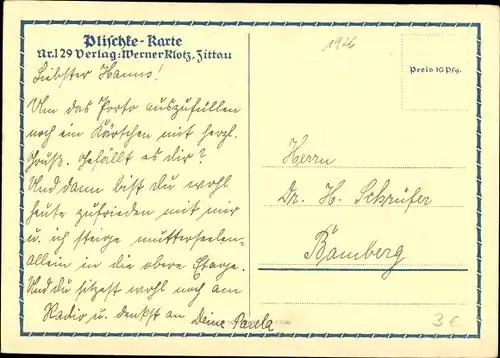 Plischke-Karte
Nr. 129 Verlag: Werner Klotz, Zittau
1926
Preis 10 Pfg.
Liebster Hanns!
Um das Porto auszufüllen
noch ein Kärtchen mit herzl.
Gruß. Gefällt es dir?
Und dann bist du wohl
heute zufrieden mit mir
u. ich steige mutterseelen-
allein in die obere Etage.
Und du sitzest wohl noch am
Radio, u. denkst an Deine Paula
Herrn
Dr. H. Schrüfer
Bamberg
3€